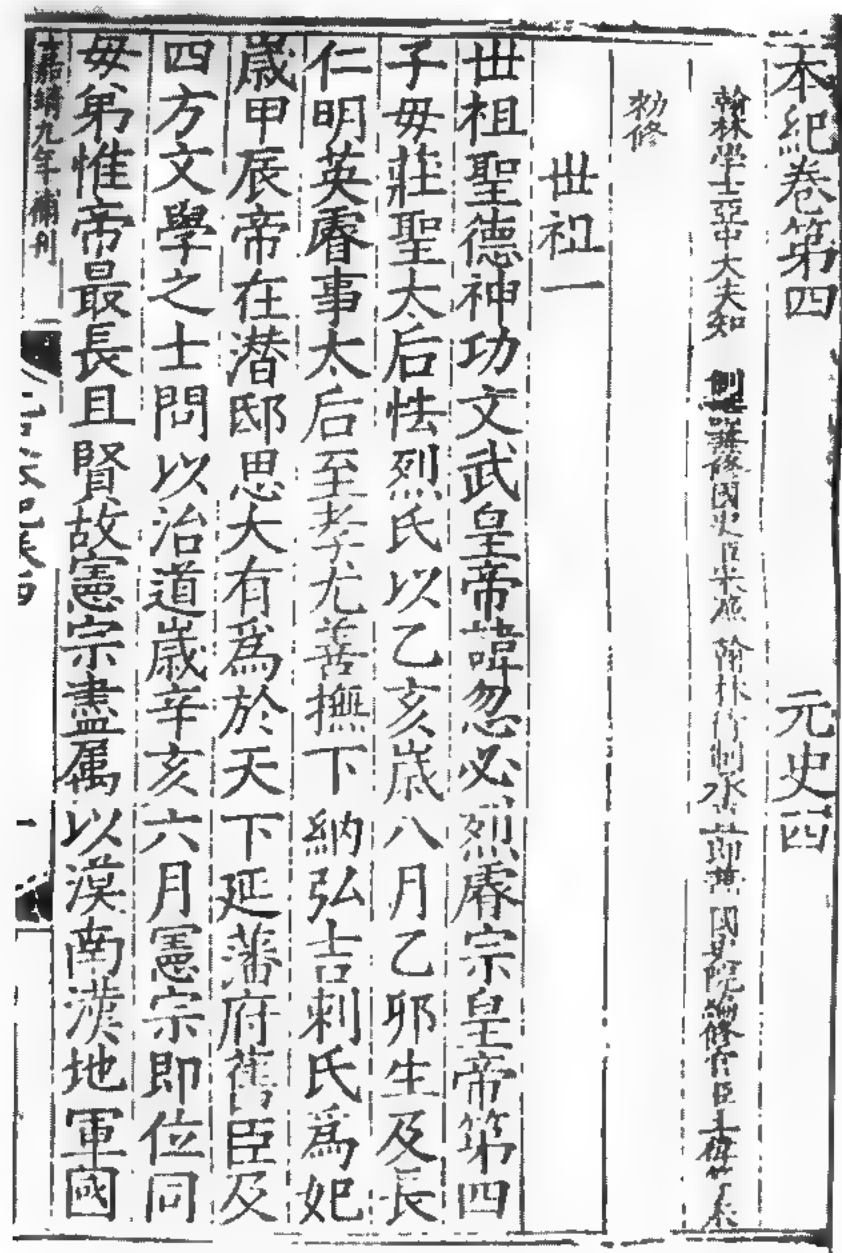 本紀卷第四 元史四
翰林學士亞中大夫知 制誥兼修國史臣宋濂 翰林待制承直郎兼 國史院編修官臣王禕等奉
勑修
世祖一
世祖聖德神功文武皇帝諱忽必烈睿宗皇帝第四
子母莊聖太后怯烈氏以乙亥歲八月乙卯生及長
仁明英睿事太后至孝尤善撫下納弘吉剌氏爲妃
歲甲辰帝在潛邸思大有爲於天下延藩府舊臣及
四方文學之士問以治道歲辛亥六月憲宗即位同
母弟惟帝最長且賢故憲宗盡屬以漠南漢地軍國
嘉靖九年補刊